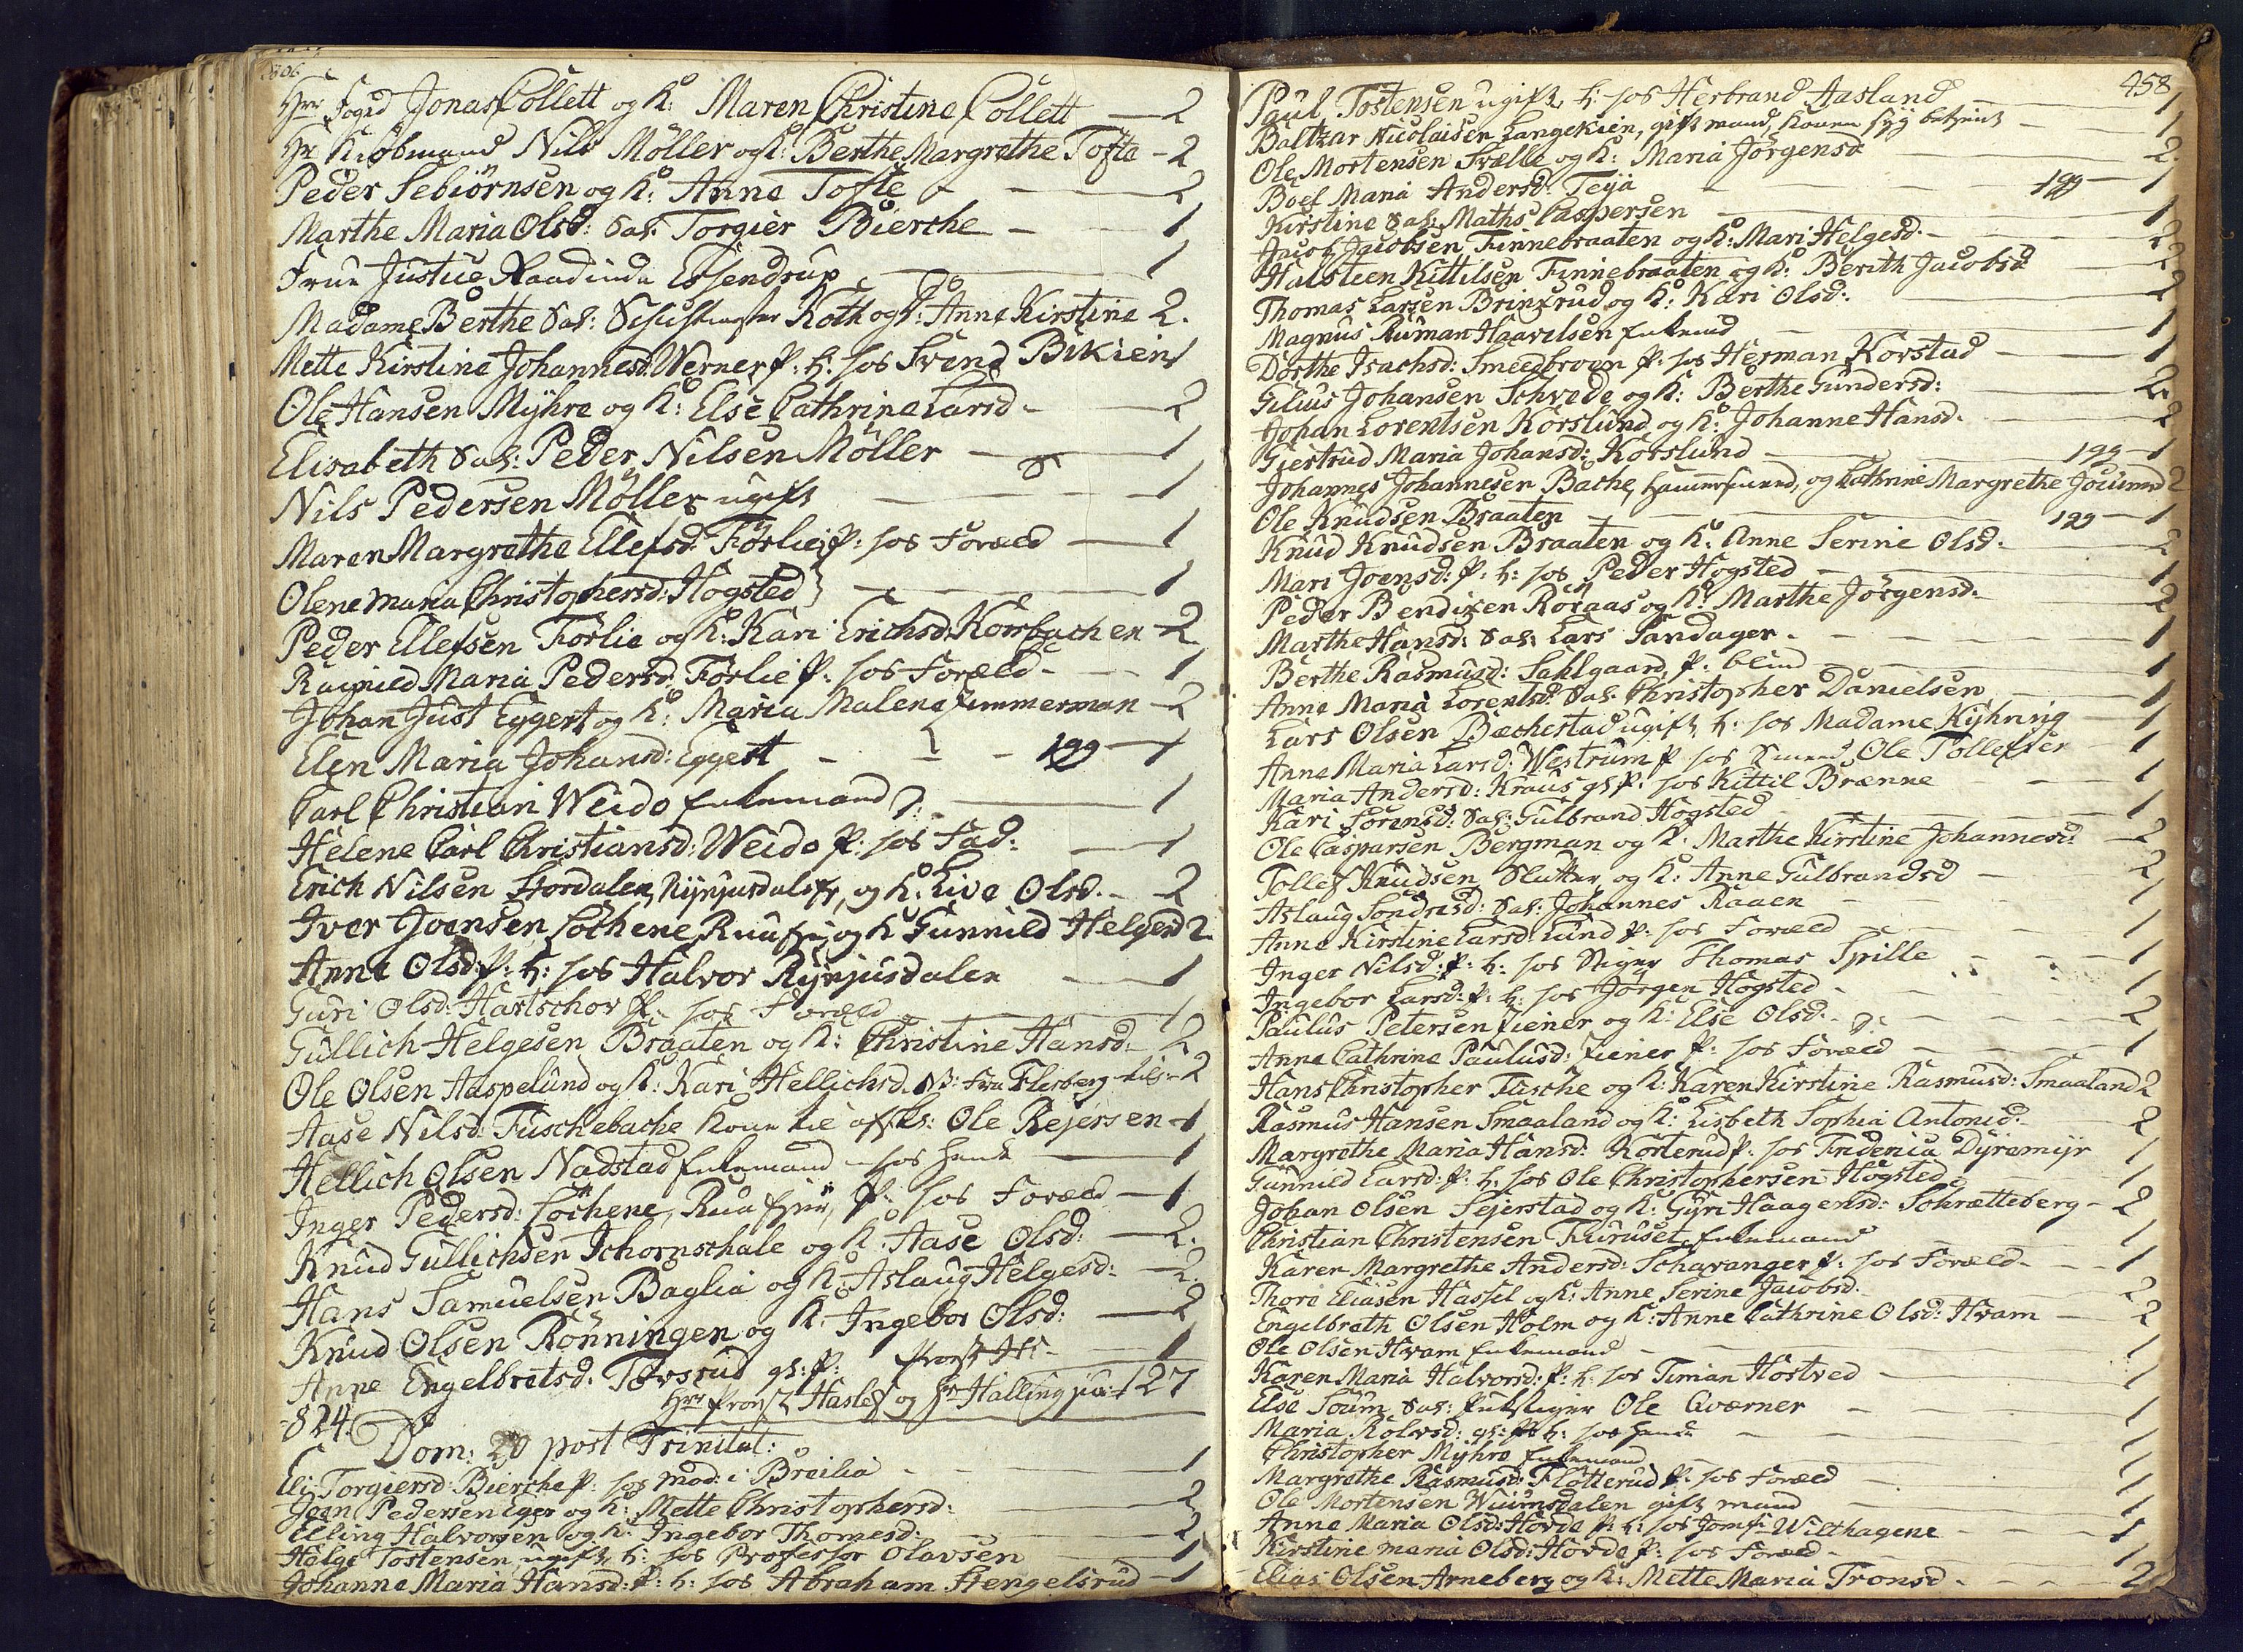 1806
Hrr Foged Jonas Collett og K: Maren Christine Collett — 2
Hr Kiøbmand Nils Möller og K: Berthe Margrethe Tofte - 2
Peder Sebiørnsen og K: Anne Tofte - — 2
Marthe Maria Olsd: Sal. Torgier Bierche - — 1
Frue Justice Raadinde Essendrup — 1
Madame Berthe Sal: Roth og K: Anne Kirstine 2.
Mette Kirstine Johannesd: Werner P: h: hos Svend Bikien 1
Ole Hansen Myhre og K: Else Cathrine Larsd - — 2
Elisabeth Sal: Peder Nilsen Möller — 1
Nils Pedersen Möller ugift — 1
Maren Margrethe Ellefsd: Förlie P: hos Foræld — 1
Olene Maria Christophersd: Hogsted — 1
Peder Ellefsen Förlie og K: Kari Erichsd: Korbachen - 2
Ragnild Maria Pedersd: Förlie P: hos Foræld - — 1
Johan Just Eggert og K: Maria Malene Zimmerman - 2
Elen Maria Johansd: Eggert - - - 1gg — 1
Carl Christian Weido Enkemand — 1
Helene Carl Christiansd: Weido P: hos Fad: — 1
Erich Nilsen Stordalen, og K: Live Olsd. - 2
Iver Joensen Löchene, og K Gunnild Helgesd 2.
Anne Olsd: P: h: hos Halvor Rynjusdalen — 1
Guri Olsd: Hartschov P: hos Foræld — 1
Gullich Helgesen Braaten og K: Christine Hansd: - 2
Ole Olsen Haspelund og K: Kari Hellichsd. NB: fra Flesberg - 2
Aase Nilsd: Fuschebache Kone til Ole Rejersen - 1
Hellich Olsen Nadstad Enkemand - hos — 1
Inger Pedersd: Löchene, P: hos Foræld — 1
Knud Gullichsen Schornschale og K: Aase Olsd: — 2.
Hans Samuelsen Baglia og K: Aslaug Helgesd: — 2.
Knud Olsen Rönningen og K: Ingebor Olsd: — 2
Anne Engelbretsd: Torsrud gl: P: — 1
Hrr Provst Haslef og Hr Halling — 127
824.
Dom: 20 post Trinitat:
Eli Torgiersd: Bierche P: hos Mod: i Breilia — 1
Joen Pedersen Eger og K: Mette Christophersd: — 2
Elling Halvorsen og K: Ingebor Thomesd: — 2
Helge Tostensen ugift, h: hos Professor Olavsen — 1
Johanne Maria Hansd: P: h: hos Abraham Stengelsrud - 1
458
Paul Tostensen ugift, h: hos Herbrand Aasland — 1
Baltzar Nicolaisen Langekien, gift mand, Konen syg betient — 1
Ole Mortensen Svælle og K: Maria Jörgensd — 2.
Boel Maria Andersd: Teya — 1gg — 1
Kirstine Sal: Maths Caspersen — 1
Jacob Jacobsen Finnebraaten og K: Mari Helgesd. — 2
Halsteen Kittilsen Finnebraaten og K: Berith Jacobsd — 2
Thomas Larsen Brinkrud og K: Kari Olsd: — 2
Magnus Ruman Haavelsen Enkemd — 1
Dorthe Isachsd: Smeedbroen P: hos Herman Korstad — 1
Gilius Johansen Schvede og K: Berthe Gundersd: — 2.
Johan Lorentsen Korslund og K: Johanne Hansd. — 2
Giertrud Maria Johansd: Korslund — 1gg — 1
Johannes Johannesen Bache, og Cathrine Margrethe 2
Ole Knudsen Braaten — 1gg — 1
Knud Knudsen Braaten og K: Anne Serine Olsd. — 2
Mari Joensd: P: h: hos Peder Hogsted — 1
Peder Bendixen Röraas og K: Marthe Jörgensd. — 2
Marthe Hansd: Sal: Lars Sandager — 1
Berthe Rasmusd: Sahlgaard, P: blind — 1
Anne Maria Lorentsd: Sal. Christopher Danielsen — 1
Lars Olsen Bæchestad ugift, h: hos Madame Kyhnrig — 1
Anne Maria Larsd: Westrum P hos Smeed Ole Tollefsen — 1
Maria Andersd: Kraus gl P: hos Kittil Brænne — 1
Kari Sorensd: Sal: Gulbrand Hogsted — 1
Ole Caspersen Bergman og K: Marthe Kirstine Johannesd: — 2
Tollef Knudsen Slutter og K: Anne Gulbrandsd — 2
Aslaug Sondresd: Sal: Johannes Raaen — 1
Anne Kirstine Larsd: Lund P: hos Foræld — 1
Inger Nilsd: P: h: hos Stiger Thomas Spille — 1
Ingebor Larsd: P: h: hos Jörgen Hogsted — 1
Paulus Petersen Ziener og K: Else Olsd. — 2
Anne Cathrine Paulusd: Ziener P: hos Foræld — 1
Hans Christopher Fusche og K: Karen Kirstine Rasmusd: Smaaland 2
Rasmus Hansen Smaaland og K: Lisbeth Sophia Antonid. — 2
Margrethe Maria Hansd: Korterud P: hos Friderica Dyremyr — 1
Gunnild Larsd: P: h: hos Ole Christophersen Hogsted — 1
Johan Olsen Sejerstad og K: Gyri Haagensd: Schrætteberg - 2
Christian Christensen Furuset Enkemand — 1
Karen Margrethe Andersd: Schavanger P: hos Foræld. — 1
Thore Eliasen Hassel og K: Anne Serine Jacobsd. — 2
Engelbreth Olsen Holm og K: Anne Cathrine Olsd: Hvam — 2
Ole Olsen Hvam Enkemand — 1
Karen Maria Halvorsd: P: h: hos Timan Hostved — 1
Else Soum Sal: Ole Qværner — 1
Maria Rolvsd: gl: P: h: hos — 1
Christopher Myhre Enkemand — 1
Margrethe Rasmusd: Flotterud P: hos Foræld — 1
Ole Mortensen Wuimsdalen gift mand — 1
Anne Maria Olsd: Hovde P: h: hos Jomf: Wilthagene — 1
Kirstine Maria Olsd: Hovde P: hos Foræld — 1
Elias Olsen Arneberg og K: Mette Maria Tronsd. — 2